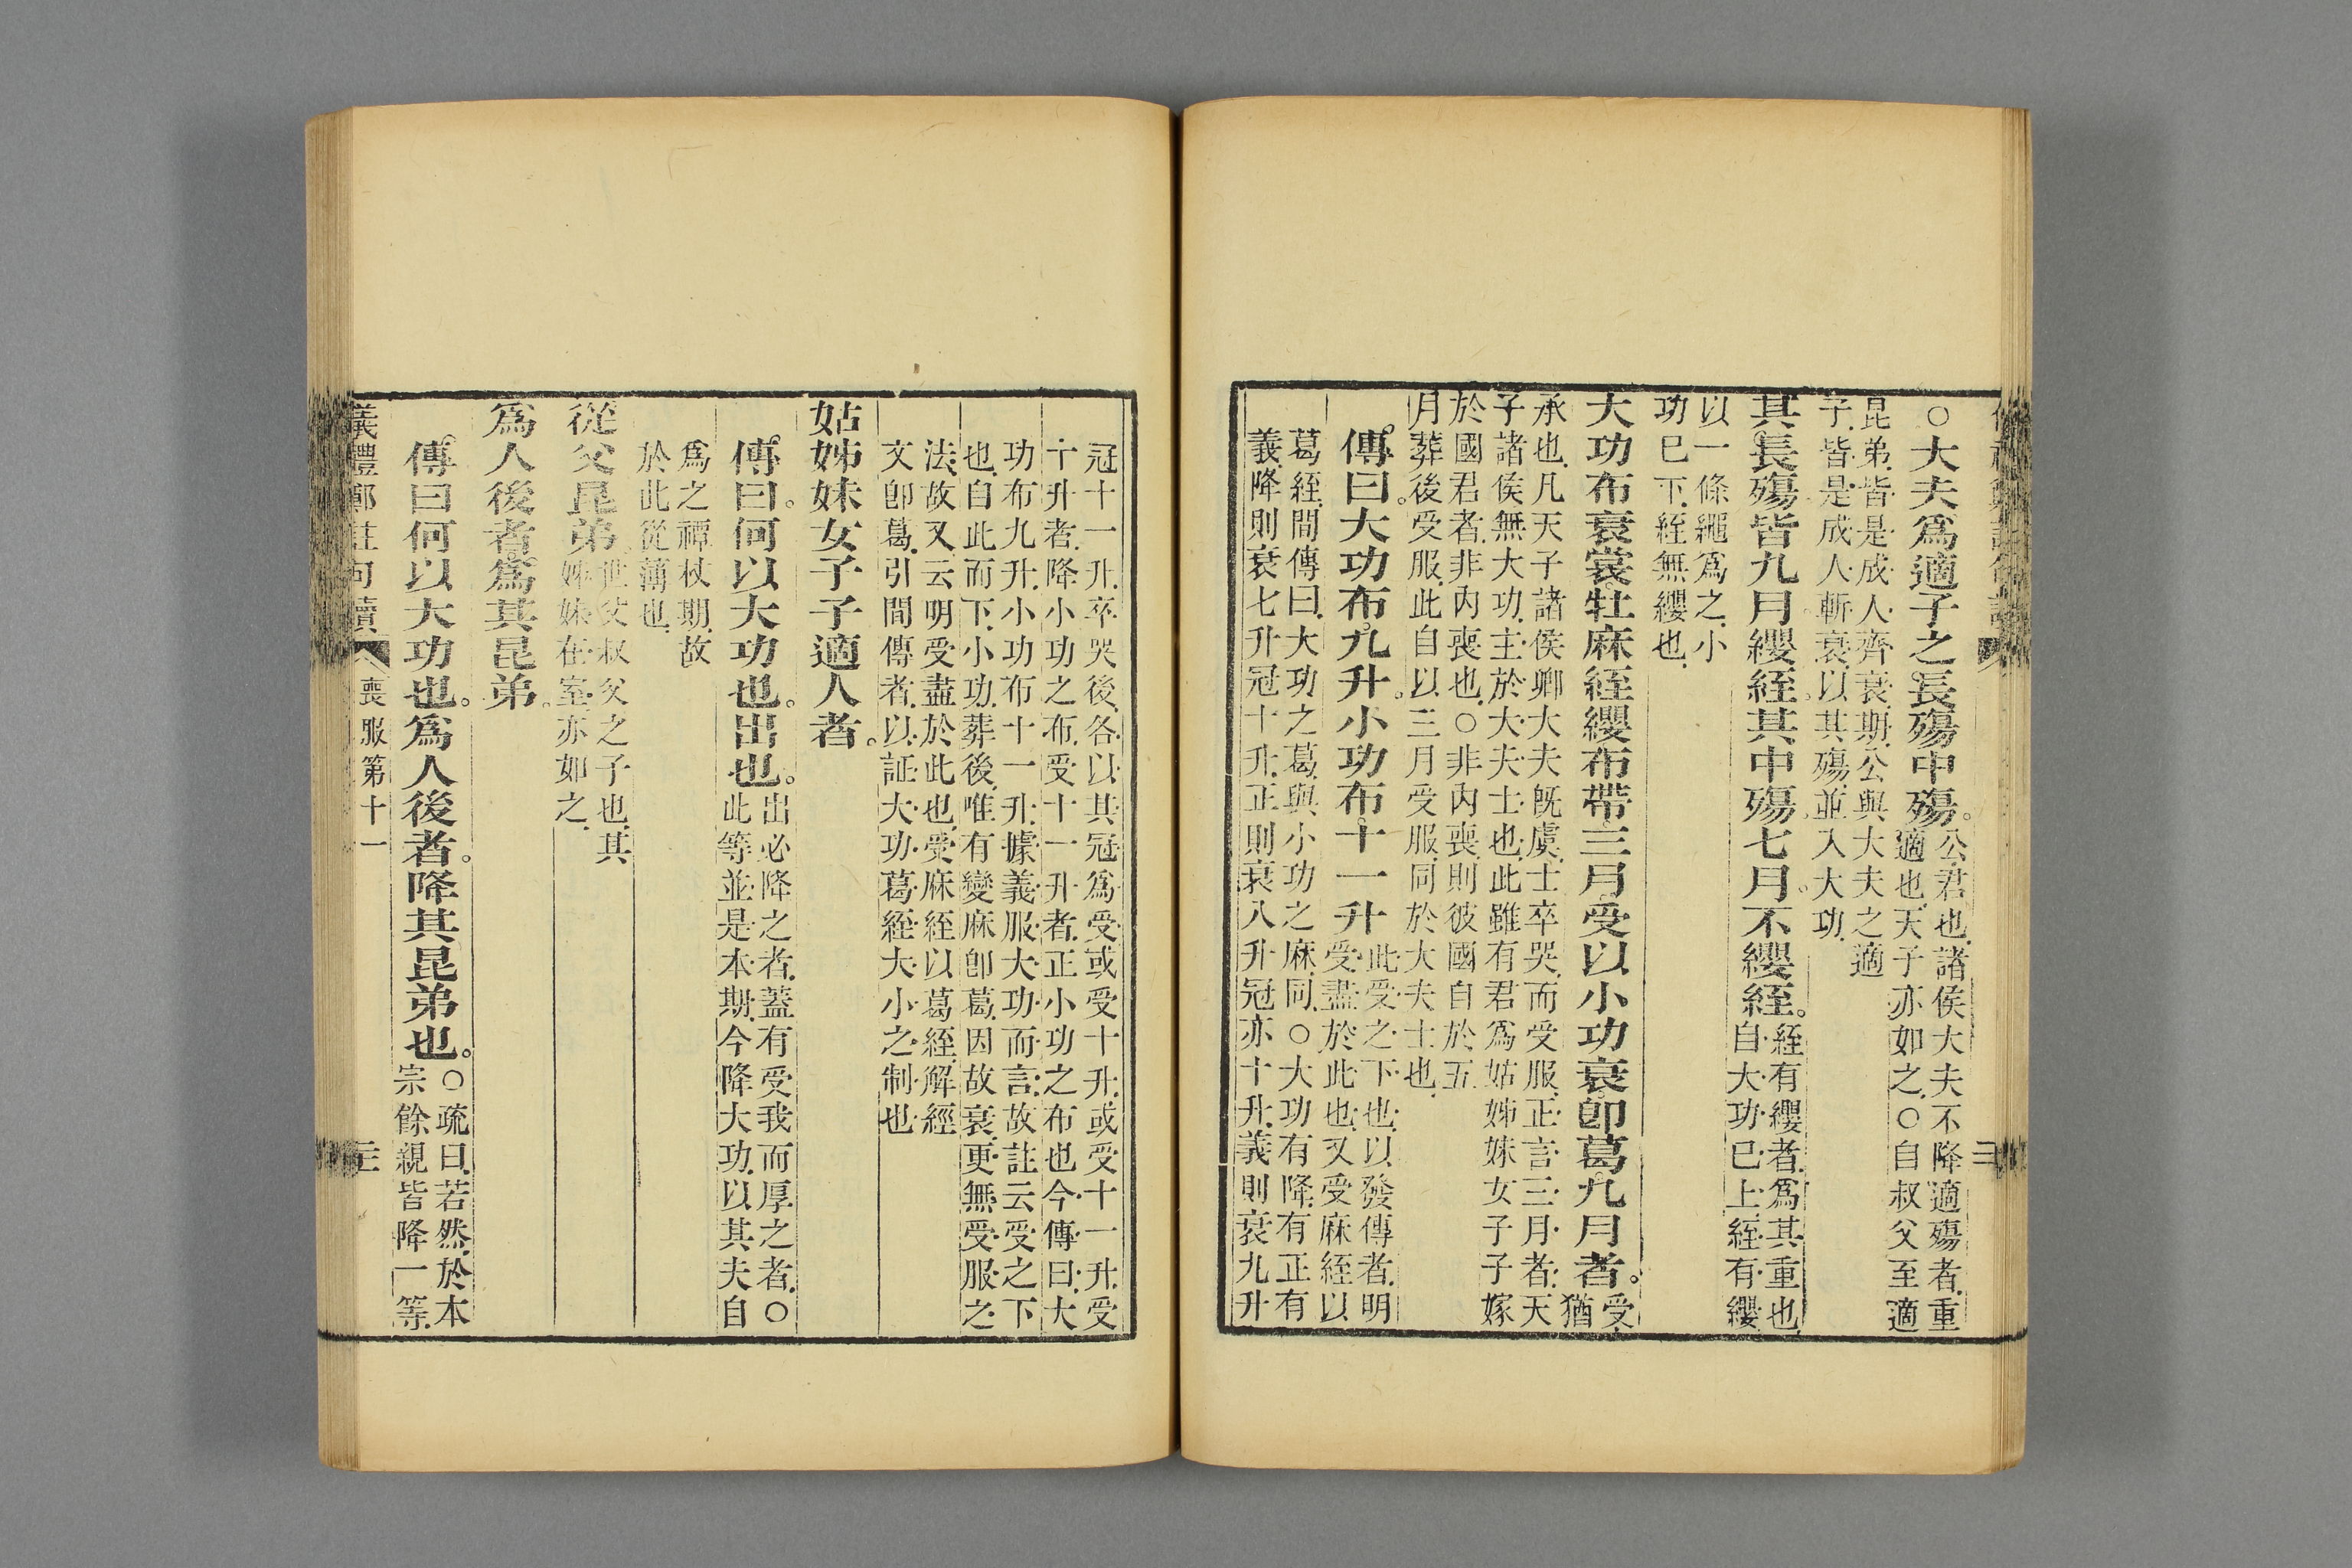 ○大夫爲適子之長殤中殤。公君也諸侯大夫不降適殤者重
適也天子亦如之○自叔父至適
昆弟皆是成人齊衰期公與大夫之適
子皆是成人斬衰以其殤並入大功
其長殤皆九月纓絰。其中殤七月。不纓絰。絰有纓者爲其重也
自大功巳上絰有纓
以一條繩爲之小
功巳下絰無纓也
大功布衰裳牡麻絰纓布帶三月受以小功衰卽葛九月者。受
猶
承也凡天子諸侯卿大夫旣虞士卒哭而受服正言三月者天
子諸侯無大功主於大夫士也此雖有君爲姑姊妹女子子嫁
於國君者非內喪也○非內喪則彼國自於五
月葬後受服此自以三月受服同於大夫士也
傳曰。大功布九升。小功布十一升此受之下也以發傳者明
受盡於此也又受麻絰以
葛絰間傳曰大功之葛與小功之麻同○大功有降有正有
義降則衰七升冠十升正則衰八升冠亦十升義則衰九升
冠十一升卒哭後各以其冠爲受或受十升或受十一升受
十升者降小功之布受十一升者正小功之布也今傳曰大
功布九升小功布十一升據義服大功而言故註云受之下
也自此而下小功葬後唯有變麻卽葛因故衰更無受服之
法故又云明受盡於此也受麻絰以葛絰解經
文卽葛引間傳者以証大功葛絰大小之制也
姑姊妹女子子適人者。
傳曰。何以大功也。出也。出必降之者蓋有受我而厚之者○
此等並是本期今降大功以其夫自
爲之禫杖期故
於此從薄也
從父昆弟。世父叔父之子也其
姊妹在室亦如之
爲人後者爲其昆弟。
傳曰何以大功也。爲人後者。降其昆弟也。○疏曰若然於本
宗餘親皆降一等
儀禮鄭註句讀 喪服第十一